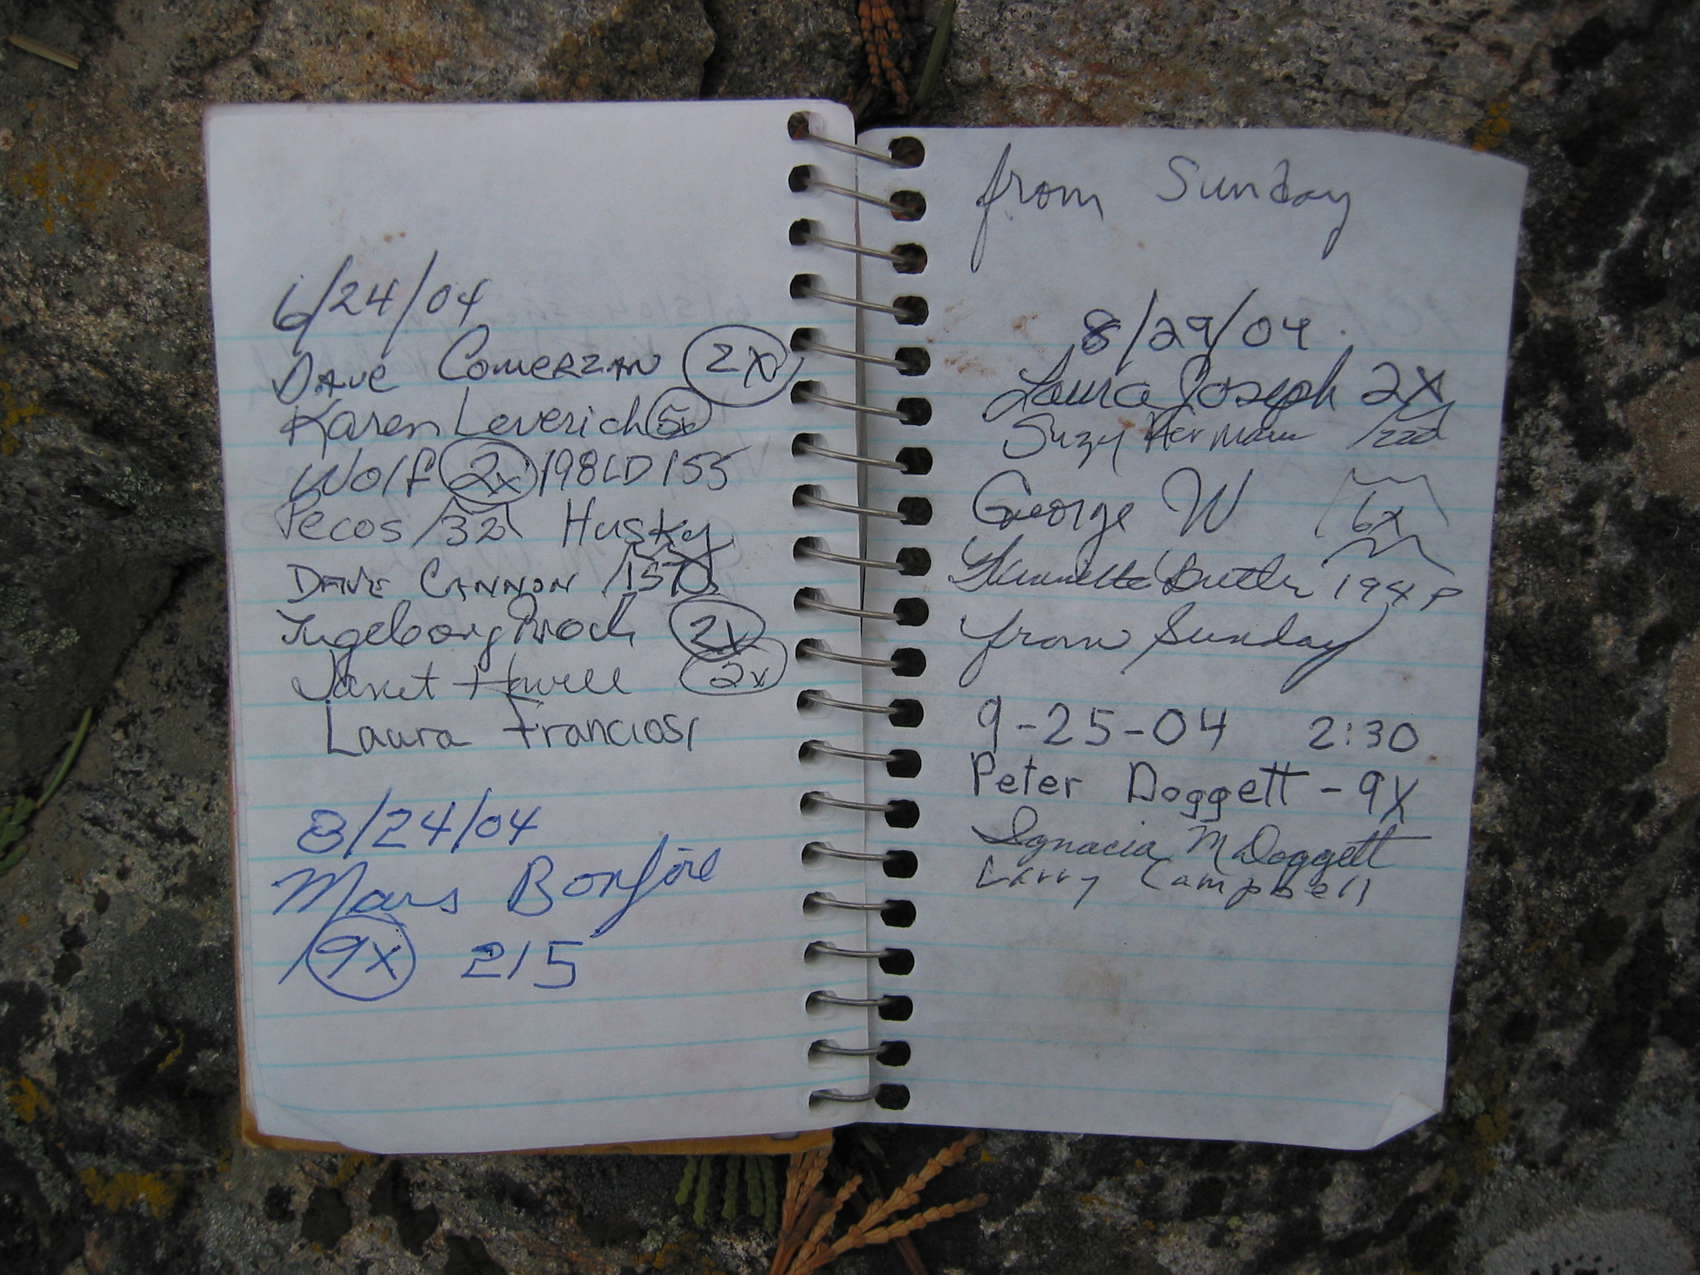 6/24/04
Dave Comerzan 2x
Karen Leverich 5x
Wolf 2x /98LD 155
Pecos /32 Husky
Dave Cannon /157
Ingeborg Prochazka 2x
Janet Howell 2x
Laura Franciosi
8/24/04
Mars Bonfire
9x 215
from Sunday
8/29/04
Laura Joseph 2X
Suzy Hermann
George W 6x
Butler
from Sunday
9-25-04 2:30
Peter Doggett - 9X
Ignacia M Doggett
Larry Campbell